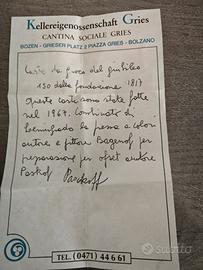 Kellereigenossenschaft Gries
CANTINA SOCIALE GRIES
BOZEN - GRIESER PLATZ 2 PIAZZA GRIES - BOLZANO
Carte da gioco del giubileo
150 della fondazione 1817
Queste carte sono state fatte
nel 1967. Combinato di
la pressa a colori
autore e pittore
preparazione per ofset autore
Paskof Paskoff
TEL. (0471) 44 6 61
subito